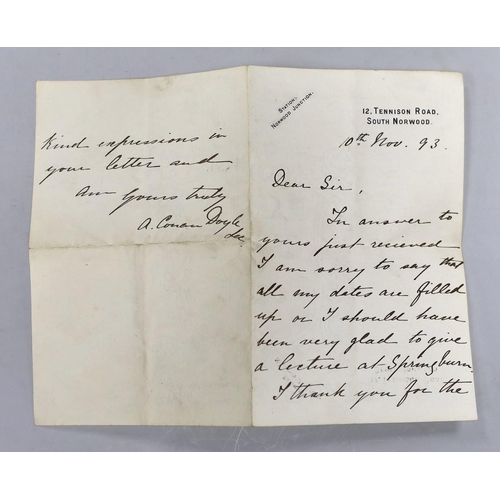 STATION:
NORWOOD JUNCTION.
12, TENNISON ROAD,
SOUTH NORWOOD.
10th Nov. 93.
Dear Sir,
In answer to
yours just recieved
I am sorry to say that
all my dates are filled
up or I should have
been very glad to give
a lecture at Springburn.
I thank you for the
kind expressions in
your letter and
am Yours truly
A. Conan Doyle